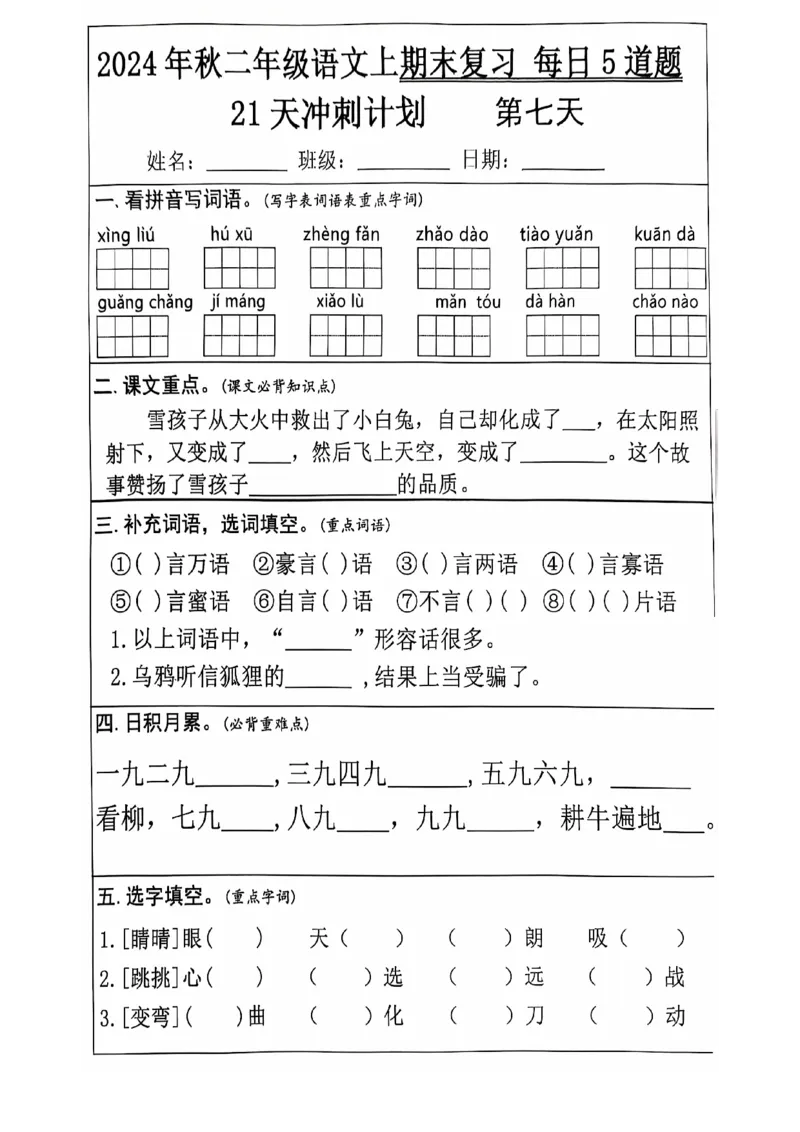 2024年秋二年级语文上期末复习 每日5道题
21天冲刺计划 第七天
姓名：________ 班级：________ 日期：________
一、看拼音写词语。(写字表词语表重点字词)
xìng liú hú xū zhèng fǎn zhǎo dào tiào yuǎn kuān dà
guǎng chǎng jí máng xiǎo lù mǎn tóu dà hàn chǎo nào
二.课文重点。(课文必背知识点)
雪孩子从大火中救出了小白兔，自己却化成了___，在太阳照
射下，又变成了____，然后飞上天空，变成了________。这个故
事赞扬了雪孩子______________的品质。
三.补充词语，选词填空。(重点词语)
①( )言万语 ②豪言( )语 ③( )言两语 ④( )言寡语
⑤( )言蜜语 ⑥自言( )语 ⑦不言( )( ) ⑧( )( )片语
1.以上词语中，“______”形容话很多。
2.乌鸦听信狐狸的______ ,结果上当受骗了。
四.日积月累。(必背重难点)
一九二九______,三九四九______,五九六九，______
看柳，七九____,八九____，九九_____，耕牛遍地___。
五.选字填空。(重点字词)
1.[睛晴]眼( ) 天（ ） （ ）朗 吸（ ）
2.[跳挑]心( ) （ ）选 （ ）远 （ ）战
3.[变弯]( )曲 （ ）化 （ ）刀 （ ）动